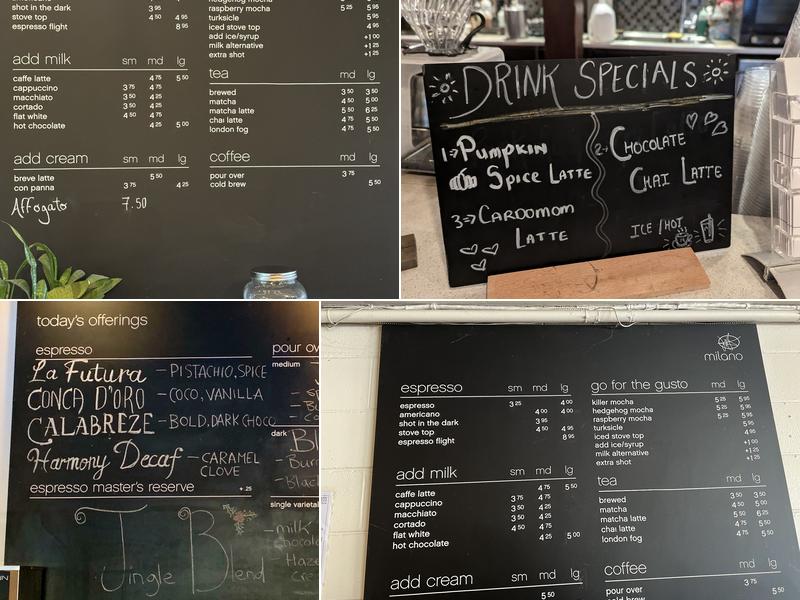 shot in the dark 3 95
stove top 4 50 4 95
espresso flight 8 95
add milk sm md lg
caffe latte 4 75 5 50
cappuccino 3 75 4 75
macchiato 3 50 4 25
cortado 3 50 4 25
flat white 4 50 4 75
hot chocolate 4 25 5 00
add cream sm md lg
breve latte 5 50
con panna 3 75 4 25
Affogato 7.50
raspberry mocha 5 25 5 95
turksicle 5 95
iced stove top 4 95
add ice/syrup +1 00
milk alternative +1 25
extra shot +1 25
tea md lg
brewed 3 50 3 50
matcha 4 50 5 00
matcha latte 5 50 6 25
chai latte 4 75 5 50
london fog 4 75 5 50
coffee md lg
pour over 3 75
cold brew 5 50
DRINK SPECIALS
1→ PUMPKIN
SPICE LATTE
3→ CARDOMOM
LATTE
2→ CHOCOLATE
CHAI LATTE
ICE/HOT
today's offerings
espresso
La Futura - PISTACHIO, SPICE
CONCA D'ORO - COCO, VANILLA
CALABREZE - BOLD, DARK CHOCO
Harmony Decaf - CARAMEL
CLOVE
espresso master's reserve + .25
Jingle Blend
pour ov
medium
dark
single varietal
- milk
Chocol
Haze
cre
milano
espresso sm md lg
espresso 3 25 4 00
americano 4 00 4 00
shot in the dark 3 95
stove top 4 50 4 95
espresso flight 8 95
add milk sm md lg
caffe latte 4 75 5 50
cappuccino 3 75 4 75
macchiato 3 50 4 25
cortado 3 50 4 25
flat white 4 50 4 75
hot chocolate 4 25 5 00
add cream sm md lg
5 50
go for the gusto md lg
killer mocha 5 25 5 95
hedgehog mocha 5 25 5 95
raspberry mocha 5 25 5 95
turksicle 5 95
iced stove top 4 95
add ice/syrup +1 00
milk alternative +1 25
extra shot +1 25
tea md lg
brewed 3 50 3 50
matcha 4 50 5 00
matcha latte 5 50 6 25
chai latte 4 75 5 50
london fog 4 75 5 50
coffee md lg
pour over 3 75
cold brew 5 50